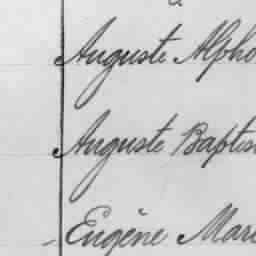 Auguste Alpho
Auguste Baptis
Eugène Mari